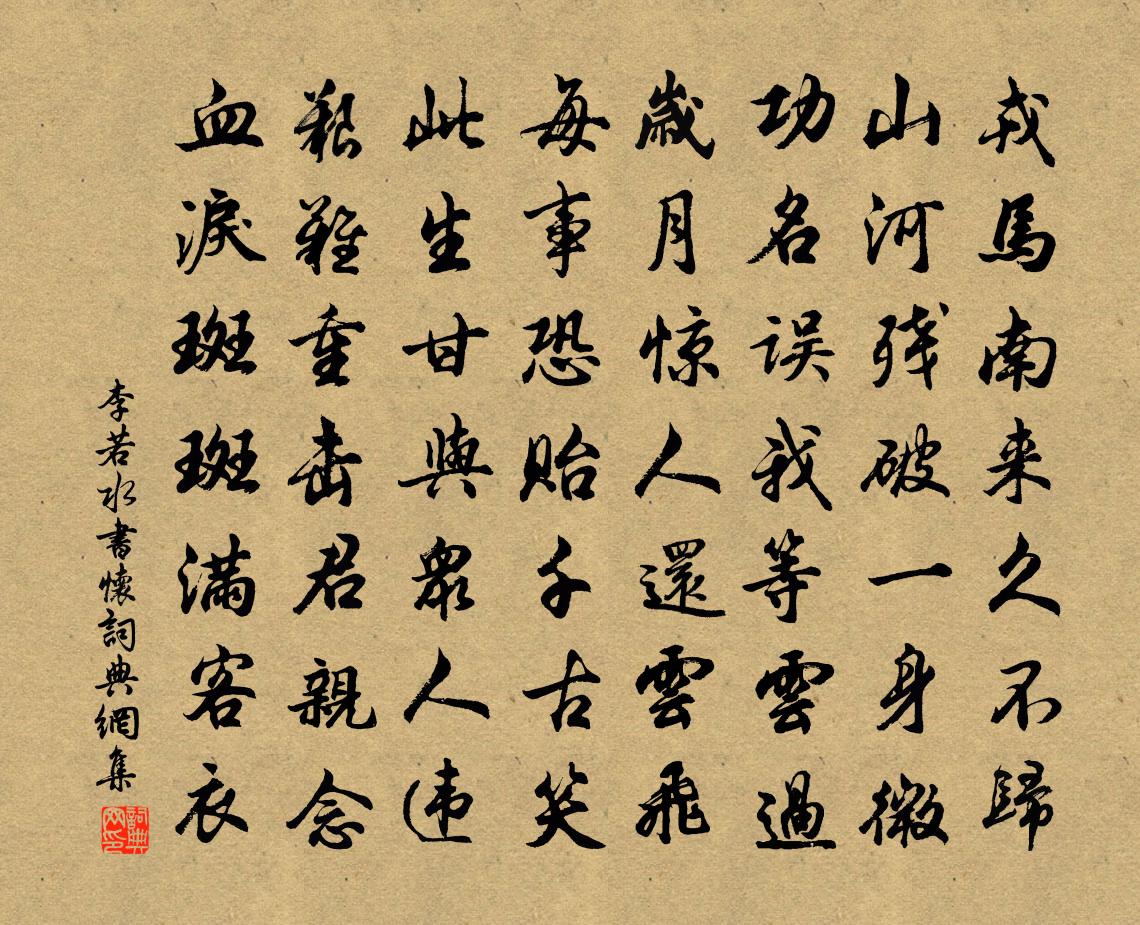 戎馬南来久不歸
山河殘破一身微
功名误我等雲過
歲月惊人還雲飛
每事恐貽千古笑
此生甘與衆人违
艱難重畫君親念
血淚斑斑滿客衣
李若水書懷詞典網集
詞典网印